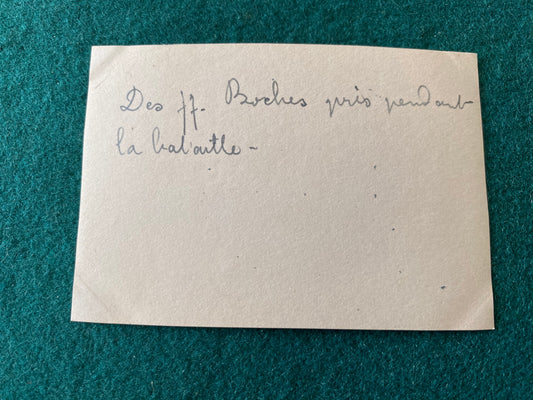 Des ff. Boches pris pendant
la bataille -